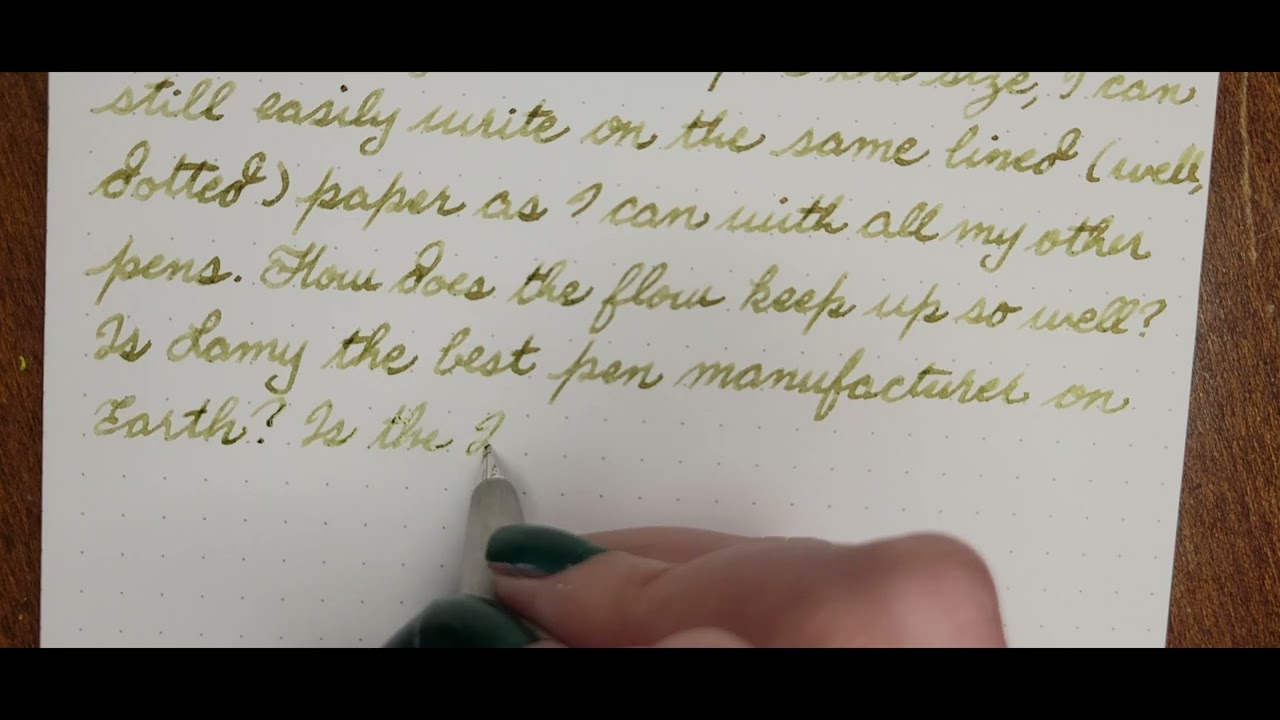 the size, I can
still easily write on the same lined (well,
dotted) paper as I can with all my other
pens. How does the flow keep up so well?
Is Lamy the best pen manufacturer on
Earth? Is the